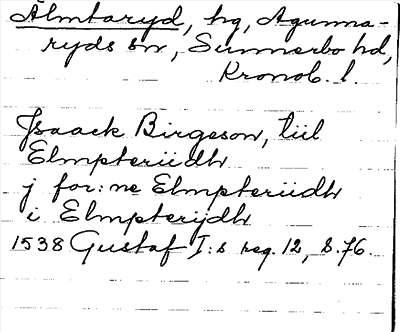 Älmtaryd, hg, Agunna-
ryds sn, Sunnerbo hd,
Kronob. l.
Jsaack Birgeson, tiil
Elmpteriidh
j for:ne Elmpteriidh
i Elmpterijdh
1538 Gustaf I:s reg. 12, S. 76.